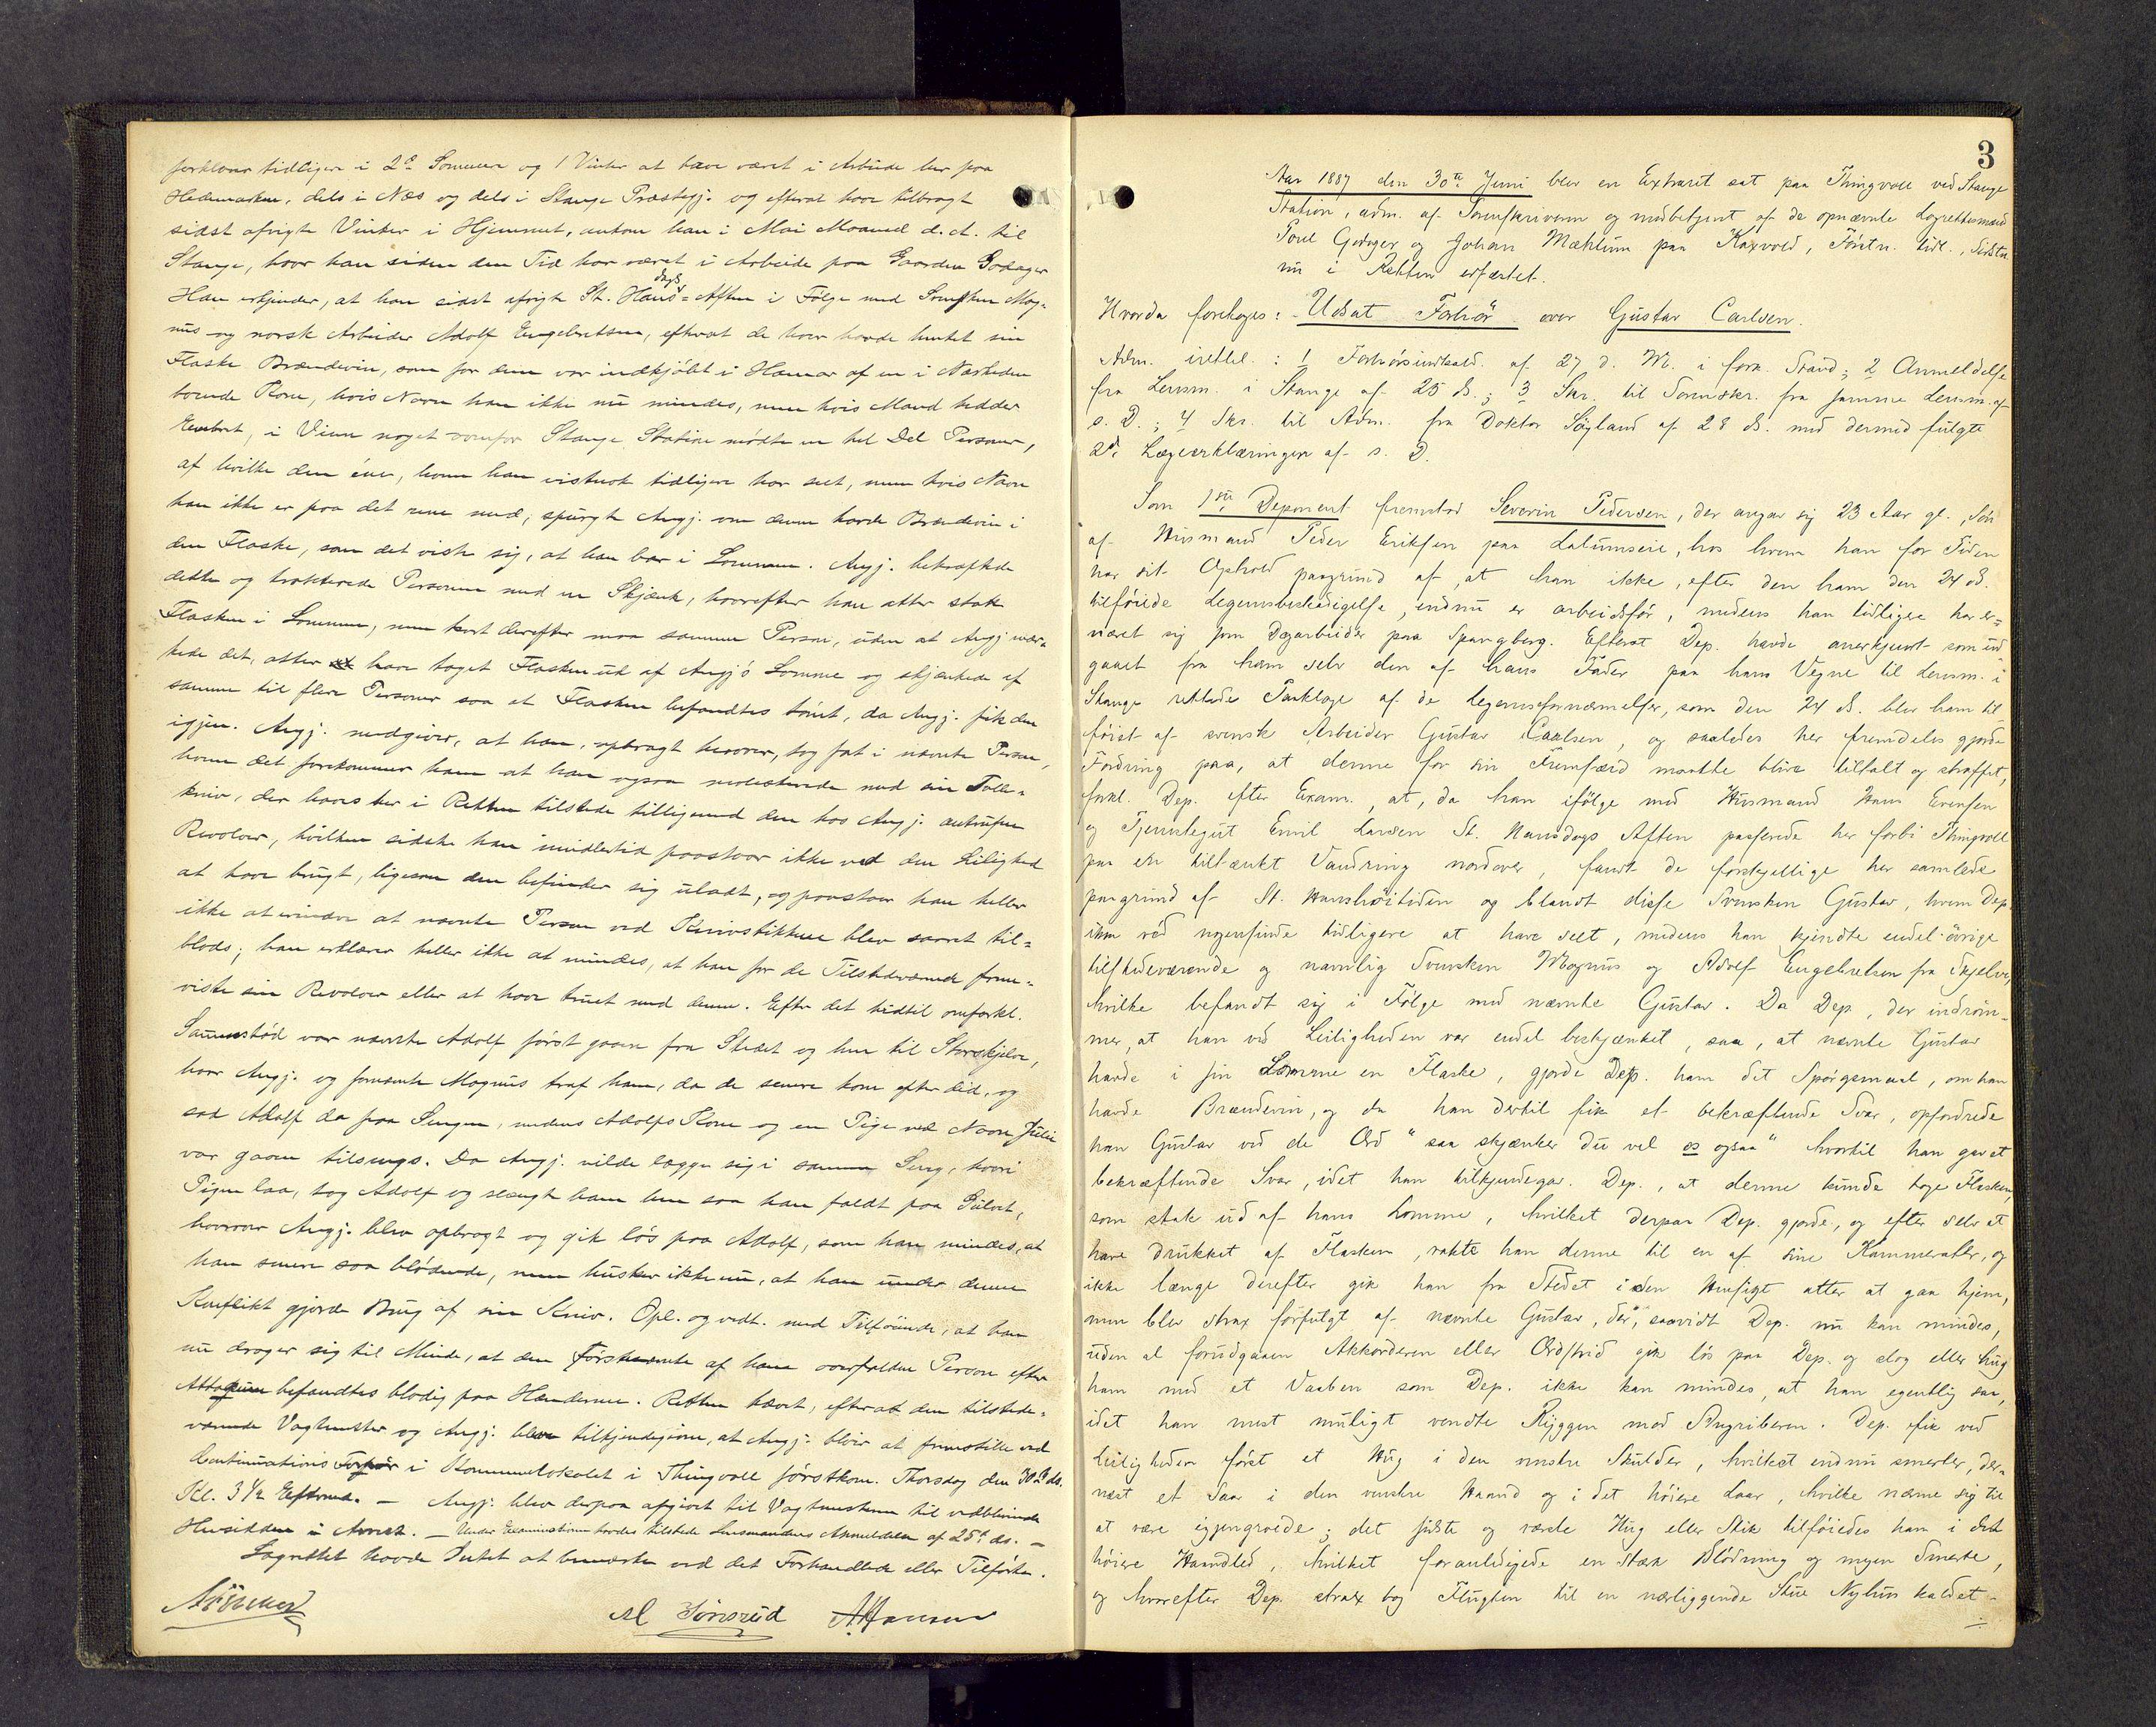 forklarer tidligere i 2de Sommere og 1 Vinter at have været i Arbeide her paa
Hedemarken, dels i Næs og dels i Stange Præstegj. og efterat have tilbragt
sidst afvigte Vinter i Hjemmet, ankom han i Mai Maaned d.A. til
Stange, hvor han siden den Tid har været i Arbeide paa Gaarden Godager
Han erkjender, at han sidst afvigte St. Hansdags-Aften i Følge med Svensken Mag-
nus og norsk Arbeider Adolf Engebretsen, efterat de hver havde hentet sin
Flaske Brændevin, som for dem var indkjøbt i Hamar af en i Nærheden
boende Kone, hvis Navn han ikke nu mindes, men hvis Mand hedder
Engebret, i Veien noget Stange Station mødte en hel Del Personer,
af hvilke den ene, hvem han vistnok tidligere har seet, men hvis Navn
han ikke er paa det rene med, spurgte Angj. om denne havde Brændevin i
den Flaske, som det viste sig, at han bar i Lommen. Angj. bekræftede
dette og trakterede Personen med en Skjænk, hvorefter han atter stak
Flasken i Lommen, men kort derefter maa samme Person, uden at Angj. mær-
kede det, atter have taget Flasken ud af Angj's Lomme og skjænkede af
samme til flere Personer saa at Flasken befandtes tømt, da Angj. fik den
igjen. Angj. medgiver, at han, opbragt herover, tog fat i nævnte Person,
hvem det forekommer ham at han ogsaa molesterede med sin Tolle-
kniv, der haves her i Retten tilstede tilligemed den hos Angj. antrufne
Revolver, hvilken sidste han imidlertid paastaar ikke ved den Leilighed
at have brugt, ligesom den befinder sig uladt, og paastaar han heller
ikke at erindre at nævnte Person ved Knivstikkene blev saaret til-
blods; han erklærer heller ikke at mindes, at han for de Tilstedeværende frem-
viste sin Revolver eller at have truet med denne. Efter det hidtil omforkl.
Sammenstød var nævnte Adolf først gaaen fra Stedet og hen til Storskjelve,
hvor Angj. og fornævnte Magnus traf ham, da de senere kom efter did, og
sad Adolf da paa Sengen, medens Adolfs Kone og en Pige ved Navn Julie
var gaaen tilsengs. Da Angj. vilde lægge sig i samme Seng, hvori
Pigen laa, tog Adolf og slængte ham hen saa han faldt paa Gulvet,
hvorover Angj. blev opbragt og gik løs paa Adolf, som han mindes, at
han senere saa blødende, men husker ikke nu, at han under denne
Konflikt gjorde Brug af sin Kniv. Opl. og vedt. med Tilføiende, at han
nu drager sig til Minde, at den førstnævnte af ham overfaldne Person efter
Attaquen befandtes blodig paa Hænderne. Retten hævet, efterat den tilstede-
værende Vagtmester og Angj. blev tilkjendegivne, at Angj. bliver at fremstille ved
Continuations Forhør i Kommunelokalet i Thingvold førstkom. Thorsdag den 30te ds.
Kl. 3 1/2 Efterm. — Angj. blev derpaa afgivet til Vagtmesteren til vedblivende
Hensidden i Arrest. — Under Examinationen havdes tilstede Lensmandens Anmeldelse af 25de ds. —
Lagrettet havde Intet at bemærke ved det Forhandlede eller Tilførte.
M Sörensrud A. Hansen
3
Aar 1887 den 30te Juni blev en Extraret sat paa Thingvold ved Stange
Station, adm. af Sorenskriveren og medbetjent af de opnævnte Lagrettesmænd
Poul Godager og Johan Mæhlum paa Kaxvold, Førstn. tidl., Sidstn.
nu i Retten edfæstet.
Hvorda foretoges: Udsat Forhör over Gustav Carlsen.
Adm. irettel.: 1 Forhörsindkald. af 27 d. M. i fork. Stand; 2 Anmeldelse
fra Lensm. i Stange af 25 ds.; 3 Skr. til Sorenskr. fra samme Lensm. af
s. D.; 4 Skr. til Adm. fra Doktor Søyland af 28 ds. med dermed fulgte
2de Lægeerklæringer af s. D.
Som 1ste Deponent fremstod Severin Pedersen, der angav sig 23 Aar gl., Søn
af Husmand Peder Eriksen paa Lalumseie, hos hvem han for Tiden
har sit Ophold paagrund af, at han ikke, efter den ham den 24 ds.
tilföiede Legemsbeskadigelse, endnu er arbeidsför, medens han tidligere har er-
næret sig som Dagarbeider paa Spangberg. Efterat Dep. havde anerkjendt som ud-
gaaet fra ham selv den af hans Fader paa hans Vegne til Lensm. i
Stange rettede Paaklage af de Legemsfornærmelser, som den 24 ds. blev ham til-
föiet af svensk Arbeider Gustav Carlsen, og saaledes her fremdeles gjorde
Fordring paa, at denne for sin Fremfærd maatte blive tiltalt og straffet,
forkl. Dep. efter Exam., at, da han ifölge med Husmand Hans Evensen
og Tjenestegut Emil Larsen St. Hansdags Aften passerede her forbi Thingvold
paa en tiltænkt Vandring nordover, fandt de forskjellige her samlede
paagrund af St. Hanshöitiden og blandt disse Svensken Gustav, hvem Dep.
ikke ved nogensinde tidligere at have seet, medens han kjendte endel övrige
tilstedeværende og navnlig Svensken Magnus og Adolf Engebretsen fra Skjelve,
hvilke befandt sig i Fölge med nævnte Gustav. Da Dep., der indröm-
mer, at han ved Leiligheden var endel beskjænket, saa, at nævnte Gustav
havde i sin Lomme en Flaske, gjorde Dep. ham det Spörgsmaal, om han
havde Brændevin, og da han dertil fik et bekræftende Svar, opfordrede
han Gustav ved de Ord "saa skjænker du vel os ogsaa" hvortil han gav et
bekræftende Svar, idet han tilkjendegav. Dep., at denne kunde tage Flasken,
som stak ud af hans Lomme, hvilket derpaa Dep. gjorde, og efter selv at
have drukket af Flasken, rakte han denne til en af sine Kammerater, og
ikke længe derefter gik han fra Stedet i den Hensigt atter at gaa hjem,
men blev strax forfulgt af nævnte Gustav, der, saavidt Dep. nu kan mindes,
uden al forudgaaen Akkorderen eller Ordstrid gik lös paa Dep. og slog eller hug
ham med et Vaaben som Dep. ikke kan mindes, at han egentlig saa,
idet han mest muligt vendte Ryggen mod Angriberen. Dep. fik ved
Leiligheden först et Hug i den venstre Skulder, hvilket endnu smerter, der-
næst et Saar i den venstre Haand og i det höiere Laar, hvilke nærme sig til
at være igjengroede; det sidste og værste Hug eller Stik tilföiedes ham i det
höiere Haandled, hvilket foranledigede en stærk Blödning og megen Smerte,
og hvorefter Dep. strax tog Flugten til en nærliggende Stue Nyhus kaldet -